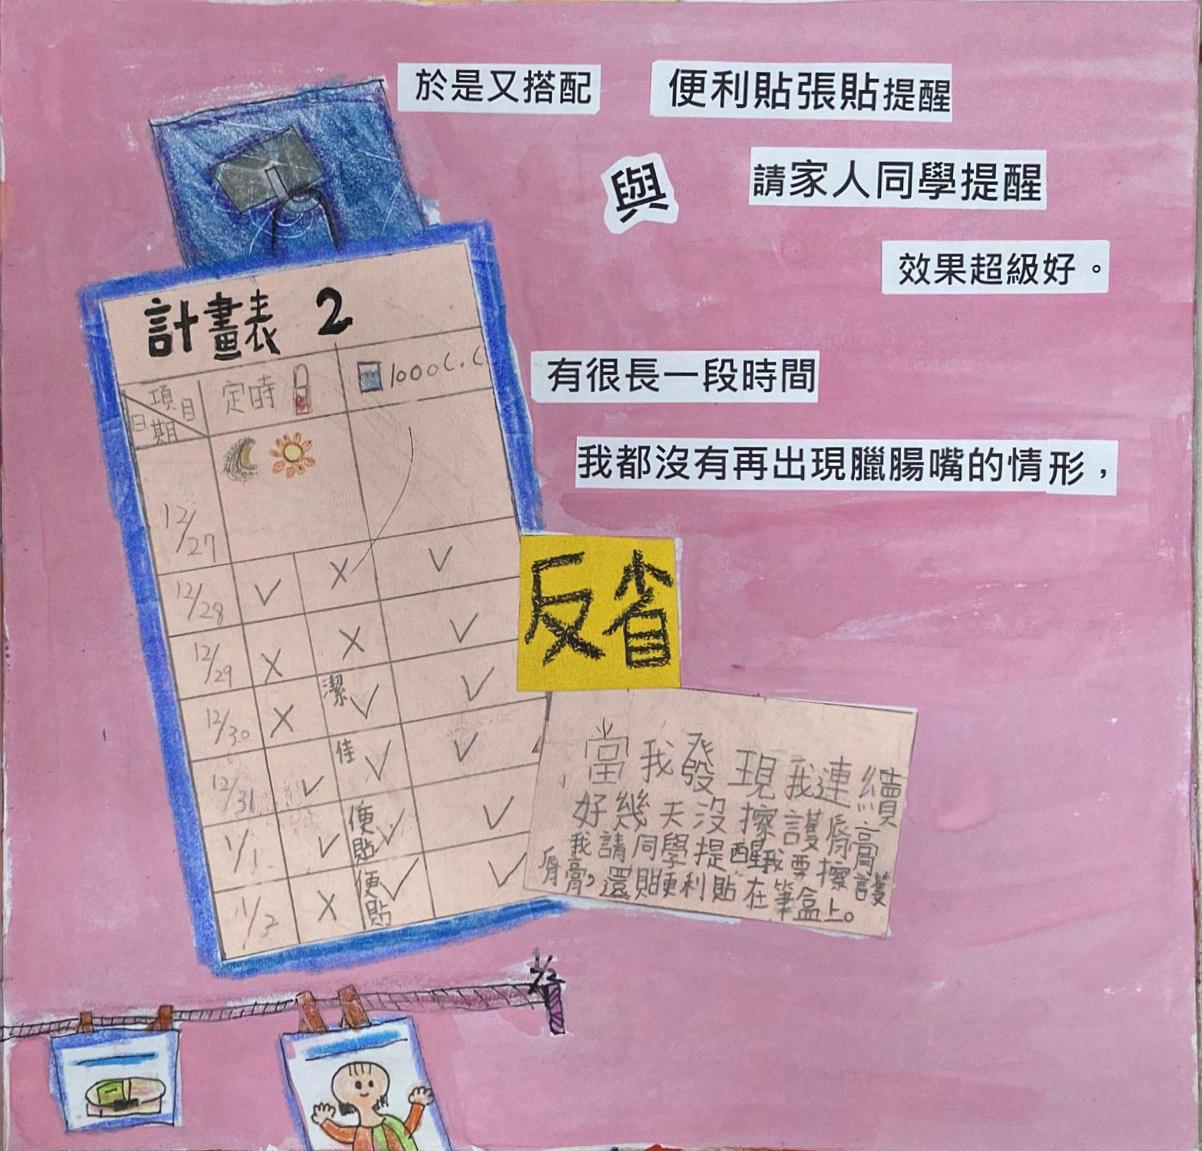 於是又搭配 便利貼張貼提醒
與 請家人同學提醒
效果超級好。
計畫表 2
項目 日期 定時 1000c.c
有很長一段時間
我都沒有再出現臘腸嘴的情形，
12/27
12/28 ✓ ✗ ✓
12/29 ✗ ✗ ✓
12/30 ✗ 潔 ✓ ✓
12/31 ✓ 佳 ✓ ✓
1/1 ✓ 便貼 ✓ ✓
1/2 ✗ 便貼 ✓ ✓
反省
當我發現我連續
好幾天沒擦護唇膏
我請同學提醒我要擦護
唇膏，還貼便利貼在筆盒上。
1/2